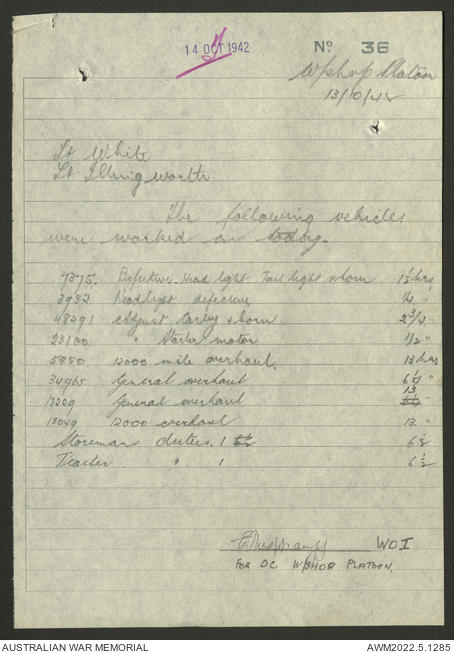 14 OCT 1942 Nº 36
W/shop Platoon
13/10/42
Lt White
Lt Illingworth
The following vehicles
were worked on today.
7375. Defective Head light Tail light & horn 1½ hrs
3932 Headlight defective ¼ "
48291 adjust Carby & horn 2 3/4 "
23180 " Starter motor 1/2 "
5850 12000 mile overhaul. 13 hrs
34965 General overhaul "
13209 General overhaul 13
15049 12000 overhaul 13 "
Storemans duties. 1 6½
" 1 6½
WO I
FOR OC W/SHOP PLATOON.
AUSTRALIAN WAR MEMORIAL AWM2022.5.1285